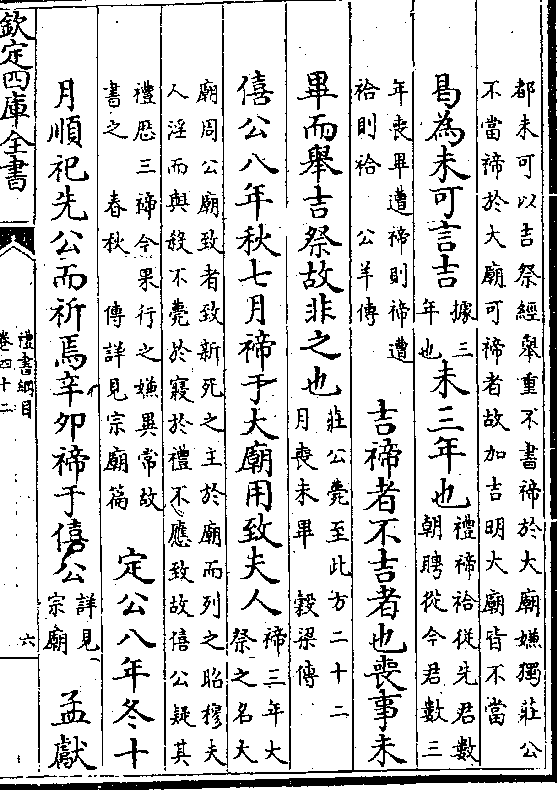 都未可以吉祭經舉重不書禘於大廟嫌獨莊公
不當禘於大廟可禘者故加吉明大廟皆不當
曷為未可言吉
據三
年也
未三年也
禮禘祫從先君數
朝聘從今君數三
年喪畢遭禘則禘遭
祫則祫 公羊傳
吉禘者不吉者也喪事未
畢而舉吉祭故非之也
莊公薨至此方二十二
月喪未畢 穀梁傳
僖公八年秋七月禘于大廟用致夫人
禘三年大
祭之名大
廟周公廟致者致新死之主於廟而列之昭穆夫
人淫而與殺不薨於寢於禮不應致故僖公疑其
禮歷三禘今果行之嫌異常故
書之 春秋 傳詳見宗廟篇
定公八年冬十
月順祀先公而祈焉辛卯禘于僖公
詳見
宗廟
孟獻
欽定四庫全書
禮書綱目
卷四十二
六